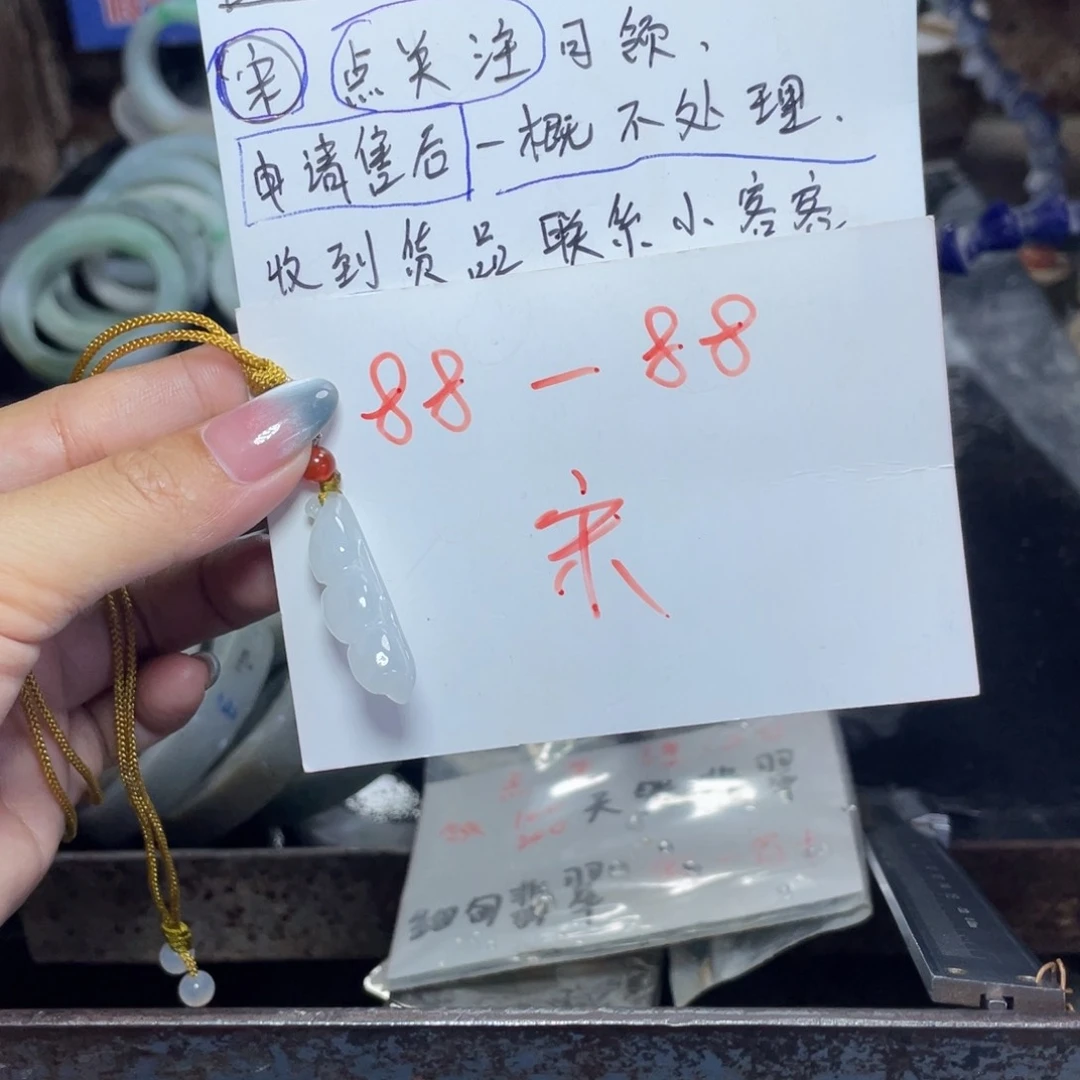 宋 点关注 可领、
申请售后 一概不处理.
收到货品联系小客客
88 - 88
宋
天然翡翠
翡翠